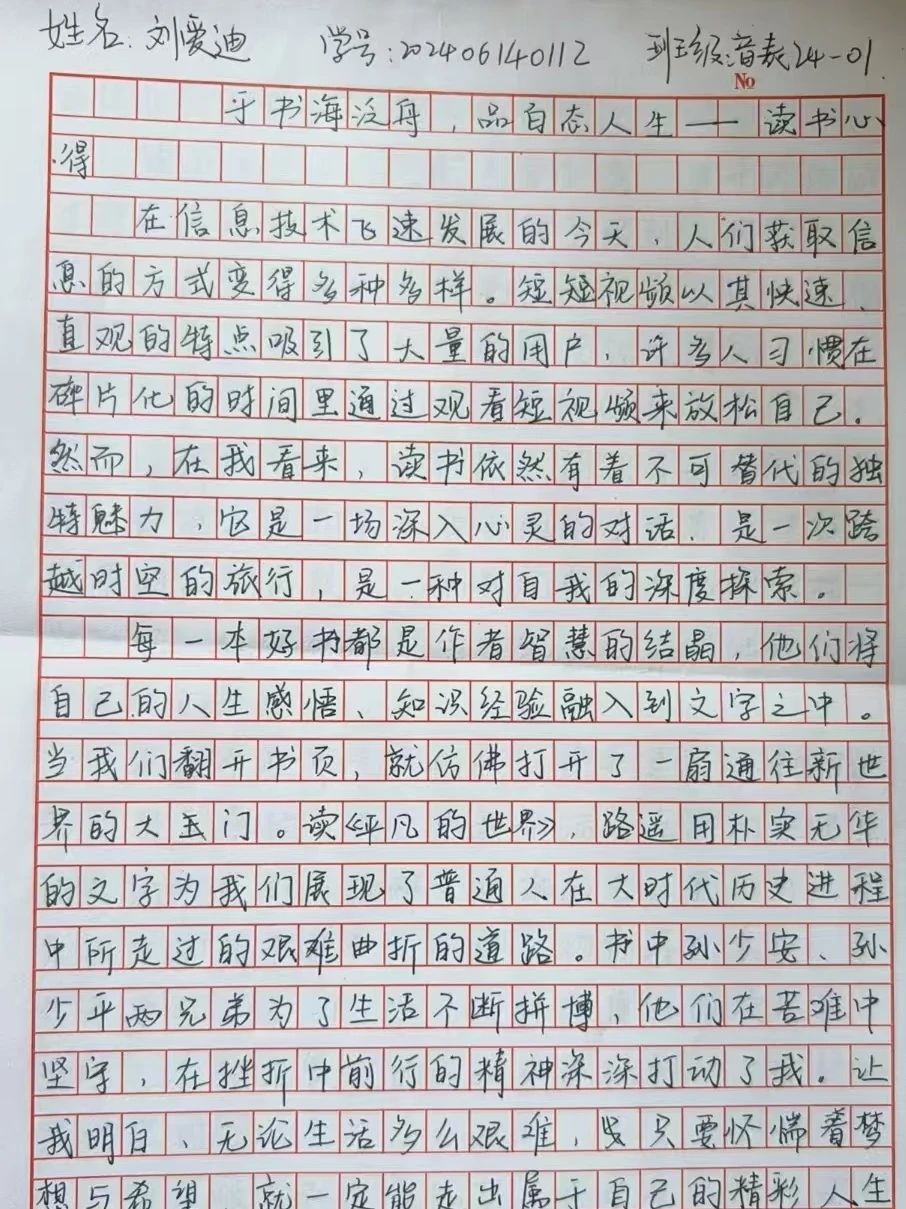 姓名:刘爱迪 学号:202406140112 班级:音表24-01
No
于书海泛舟,品百态人生——读书心
得
在信息技术飞速发展的今天,人们获取信
息的方式变得多种多样。短短视频以其快速、
直观的特点吸引了大量的用户,许多人习惯在
碎片化的时间里通过观看短视频来放松自己。
然而,在我看来,读书依然有着不可替代的独
特魅力,它是一场深入心灵的对话,是一次跨
越时空的旅行,是一种对自我的深度探索。
每一本好书都是作者智慧的结晶,他们将
自己的人生感悟、知识经验融入到文字之中。
当我们翻开书页,就仿佛打开了一扇通往新世
界的大门。读《平凡的世界》,路遥用朴实无华
的文字为我们展现了普通人在大时代历史进程
中所走过的艰难曲折的道路。书中孙少安、孙
少平两兄弟为了生活不断拼搏,他们在苦难中
坚守,在挫折中前行的精神深深打动了我。让
我明白,无论生活多么艰难,只要怀惴着梦
想与希望,就一定能走出属于自己的精彩人生